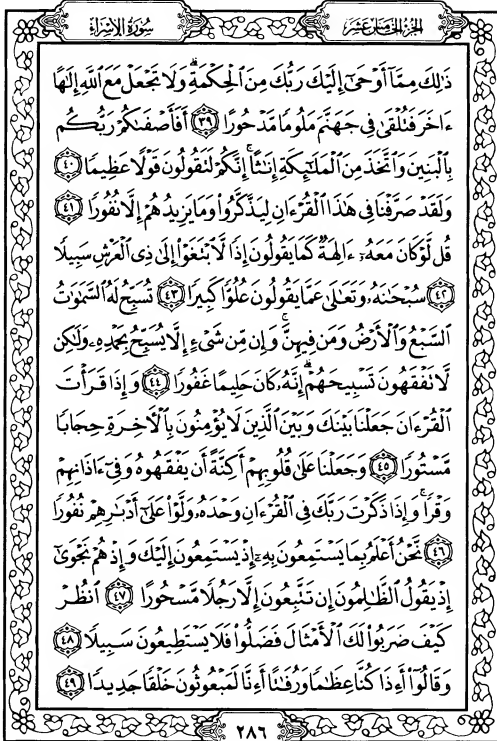 سُورَةُ الإِسْرَاءِ
الجُزْءُ الخَامِسَ عَشَرَ
ذَٰلِكَ مِمَّا أَوْحَىٰ إِلَيْكَ رَبُّكَ مِنَ الْحِكْمَةِ ۗ وَلَا تَجْعَلْ مَعَ اللَّهِ إِلَٰهًا
ءَاخَرَ فَتُلْقَىٰ فِي جَهَنَّمَ مَلُومًا مَّدْحُورًا ٣٩ أَفَأَصْفَىٰكُمْ رَبُّكُم
بِالْبَنِينَ وَاتَّخَذَ مِنَ الْمَلَٰٓئِكَةِ إِنَٰثًا ۚ إِنَّكُمْ لَتَقُولُونَ قَوْلًا عَظِيمًا ٤٠
وَلَقَدْ صَرَّفْنَا فِي هَٰذَا الْقُرْءَانِ لِيَذَّكَّرُوا۟ وَمَا يَزِيدُهُمْ إِلَّا نُفُورًا ٤١
قُل لَّوْ كَانَ مَعَهُۥٓ ءَالِهَةٌ كَمَا يَقُولُونَ إِذًا لَّابْتَغَوْا۟ إِلَىٰ ذِي الْعَرْشِ سَبِيلًا
٤٢ سُبْحَٰنَهُۥ وَتَعَٰلَىٰ عَمَّا يَقُولُونَ عُلُوًّا كَبِيرًا ٤٣ تُسَبِّحُ لَهُ السَّمَٰوَٰتُ
السَّبْعُ وَالْأَرْضُ وَمَن فِيهِنَّ ۚ وَإِن مِّن شَىْءٍ إِلَّا يُسَبِّحُ بِحَمْدِهِۦ وَلَٰكِن
لَّا تَفْقَهُونَ تَسْبِيحَهُمْ ۗ إِنَّهُۥ كَانَ حَلِيمًا غَفُورًا ٤٤ وَإِذَا قَرَأْتَ
الْقُرْءَانَ جَعَلْنَا بَيْنَكَ وَبَيْنَ الَّذِينَ لَا يُؤْمِنُونَ بِالْءَاخِرَةِ حِجَابًا
مَّسْتُورًا ٤٥ وَجَعَلْنَا عَلَىٰ قُلُوبِهِمْ أَكِنَّةً أَن يَفْقَهُوهُ وَفِىٓ ءَاذَانِهِمْ
وَقْرًا ۚ وَإِذَا ذَكَرْتَ رَبَّكَ فِي الْقُرْءَانِ وَحْدَهُۥ وَلَّوْا۟ عَلَىٰٓ أَدْبَٰرِهِمْ نُفُورًا
٤٦ نَّحْنُ أَعْلَمُ بِمَا يَسْتَمِعُونَ بِهِۦٓ إِذْ يَسْتَمِعُونَ إِلَيْكَ وَإِذْ هُمْ نَجْوَىٰٓ
إِذْ يَقُولُ الظَّٰلِمُونَ إِن تَتَّبِعُونَ إِلَّا رَجُلًا مَّسْحُورًا ٤٧ انظُرْ
كَيْفَ ضَرَبُوا۟ لَكَ الْأَمْثَالَ فَضَلُّوا۟ فَلَا يَسْتَطِيعُونَ سَبِيلًا ٤٨
وَقَالُوٓا۟ أَءِذَا كُنَّا عِظَٰمًا وَرُفَٰتًا أَءِنَّا لَمَبْعُوثُونَ خَلْقًا جَدِيدًا ٤٩
٢٨٦